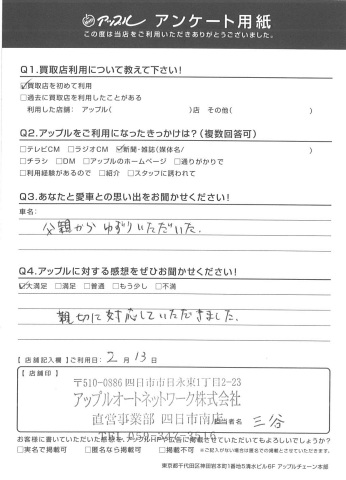 アップル アンケート用紙
この度は当店をご利用いただきありがとうございました。
Q1.買取店利用について教えて下さい!
☑買取店を初めて利用
□過去に買取店を利用したことがある
利用した店舗:アップル( )店 その他( )
Q2.アップルをご利用になったきっかけは?(複数回答可)
□テレビCM □ラジオCM ☑新聞・雑誌(媒体名/ )
□チラシ □DM □アップルのホームページ □通りがかりで
□利用経験があるので □紹介 □スタッフに誘われて
Q3.あなたと愛車との思い出をお聞かせください!
車名:
父親からゆずりいただいた。
Q4.アップルに対する感想をぜひお聞かせください!
☑大満足 □満足 □普通 □もう少し □不満
親切に対応していただきました。
【店舗記入欄】ご利用日: 2月13日
【店舗印】
〒510-0886 四日市市日永東1丁目2-23
アップルオートネットワーク株式会社
直営事業部 四日市南店
担当者名 三谷
TEL 059-347-3516
お客様に書いていただいた感想を、アップルHPや広告に掲載させていただいてもよろしいでしょうか?
□実名で掲載可 □匿名なら掲載可 □掲載不可 ※ご記入がない場合は匿名での掲載とさせていただきます。
東京都千代田区神田岩本町1番地5清水ビル6F アップルチェーン本部